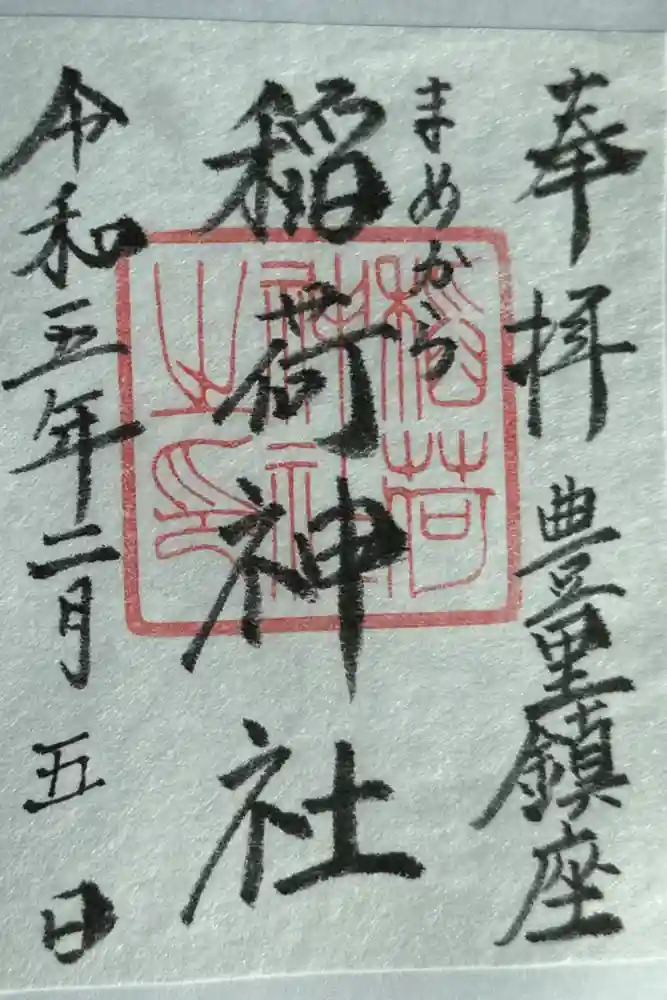 奉拝 豊里鎮座
まめから
稲荷神社
令和五年二月五日
稲荷神社之印